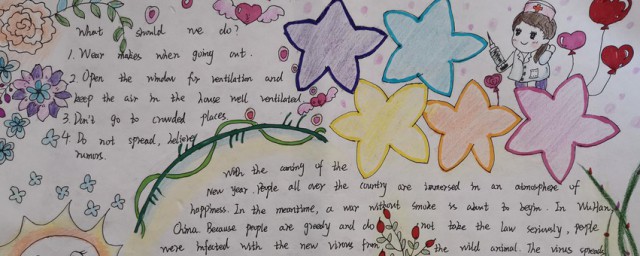 What should we do?
1. Wear makes when going out.
2. Open the window for ventilation and
keep the air in the house well ventilated
3. Don't go to crowded places
4. Do not spread, believe
rumors.
With the coming of the
New year. People all over the country are immersed in an atmosphere of
happiness. In the meantime, a war without smoke is about to begin. In WuHan,
China. Because people are greedy and do not take the law seriously, people
were infected with the new virous from the wild animal. The virus spreads